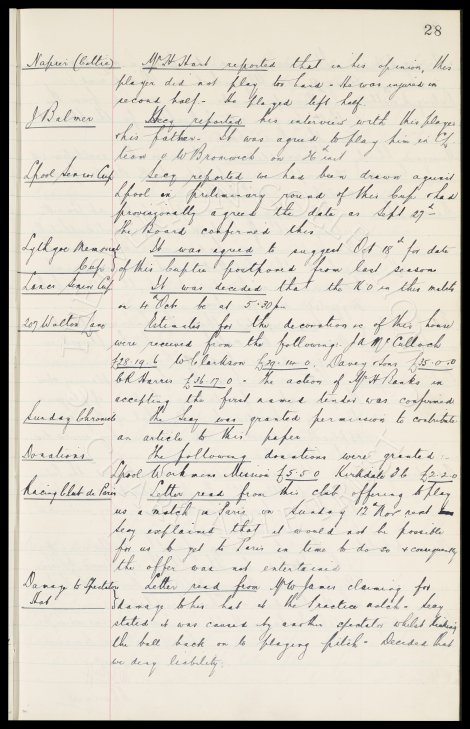 28
Napier (Celtic) Mr H Hart reported that in his opinion, this
player did not play too hard - He was injured in
second half - He played left half.
J Balmer Secy reported his interview with this player
& his father - It was agreed to play him in "C"
team v W Bromwich on 26th inst
Lpool Senior Cup Secy reported we had been drawn against
Lpool in preliminary round of this Cup & had
provisionally agreed the date as Sept 27th
The Board confirmed this
Lythgoe Memorial It was agreed to suggest Oct 18th for date
Cup of this Cuptie postponed from last season
Lancs Senior Cup It was decided that the K O in this match
on 4th Oct be at 5.30 pm
207 Walton Lane Estimates for the decoration &c of this house
were received from the following: J A McCulloch
£28.19.6 W Clarkson £29.14.0. Davey & Sons £35.0.0
C R Harris £36.17.0 - The action of Mr H Banks in
accepting the first named tender was confirmed
Sunday Chronicle The Secy was granted permission to contribute
an article to this paper
Donations The following donations were granted:-
Lpool Workmens Mission £5.5.0 Kirkdale Do £2.2.0
Racing Club de Paris Letter read from this club offering to play
us a match in Paris on Sunday 12th Nov next
Secy explained that it would not be possible
for us to get to Paris in time to do so & consequently
the offer was not entertained
Damage to Spectators Letter read from Mr W James claiming for
Hat damage to his hat at the Practice match - Secy
stated it was caused by another spectator whilst
the ball back on to playing pitch - Decided that
we deny liability.